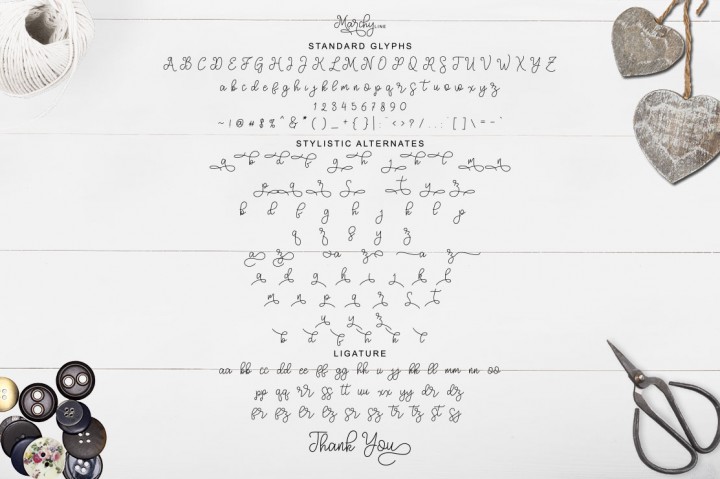 Marchy LINE
STANDARD GLYPHS
A B C D E F G H I J K L M N O P Q R S T U V W X Y Z
a b c d e f g h i j k l m n o p q r s t u v w x y z
1 2 3 4 5 6 7 8 9 0
~ ! @ # $ % ^ & * ( ) _ + { } | : " < > ? / . , : ; ' [ ] \ = - `
STYLISTIC ALTERNATES
a b d f g h j k l m n
p q r s t y z
b d f g h j k l p
q r s y z
a z a z a z
a d g h i j k l
m n p q r s t
u y z
b d f h k l
LIGATURE
aa bb cc dd ee ff gg hh ii jj kk ll mm nn oo
pp qq rr ss tt uu xx yy dr dz
er ez lr lz sr sz tr tz st sj
Thank You